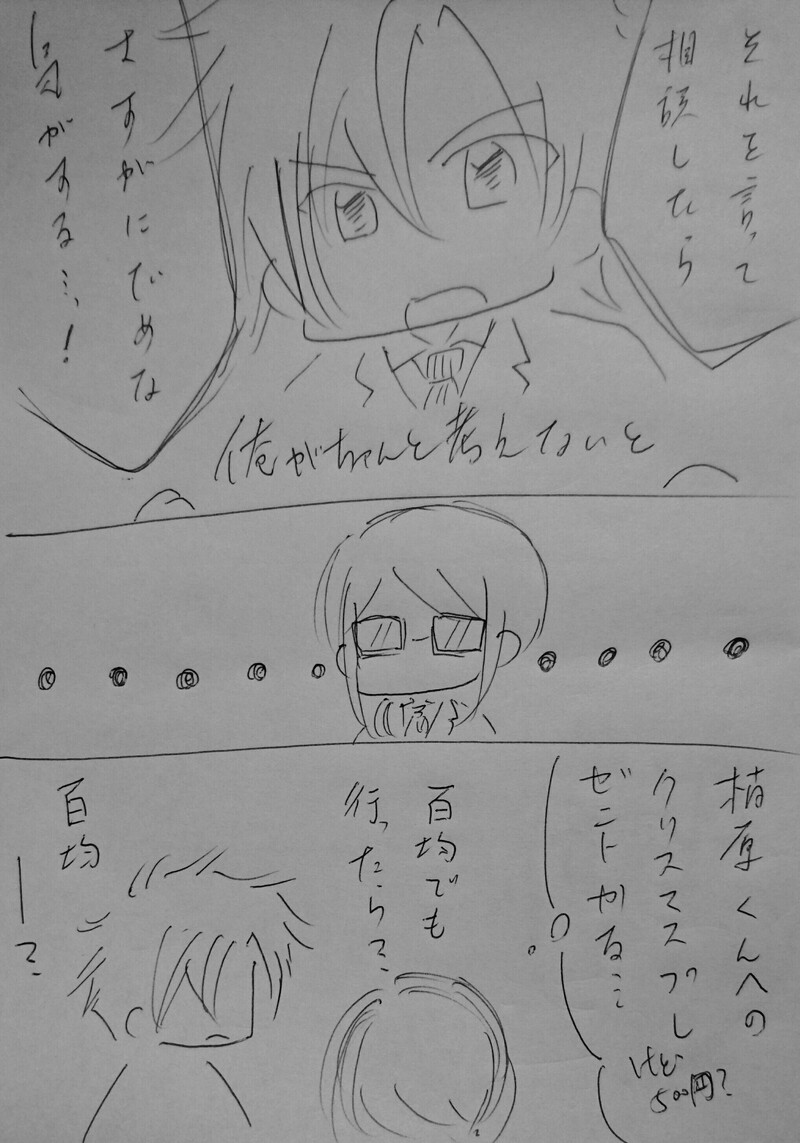 それを言って
相談したら
さすがにだめな
気がする…!
俺がちゃんと考えないと
植原くんへの
クリスマスプレ
ゼントかな…
けど
500円?
百均でも
行ったら?
百均
ー?